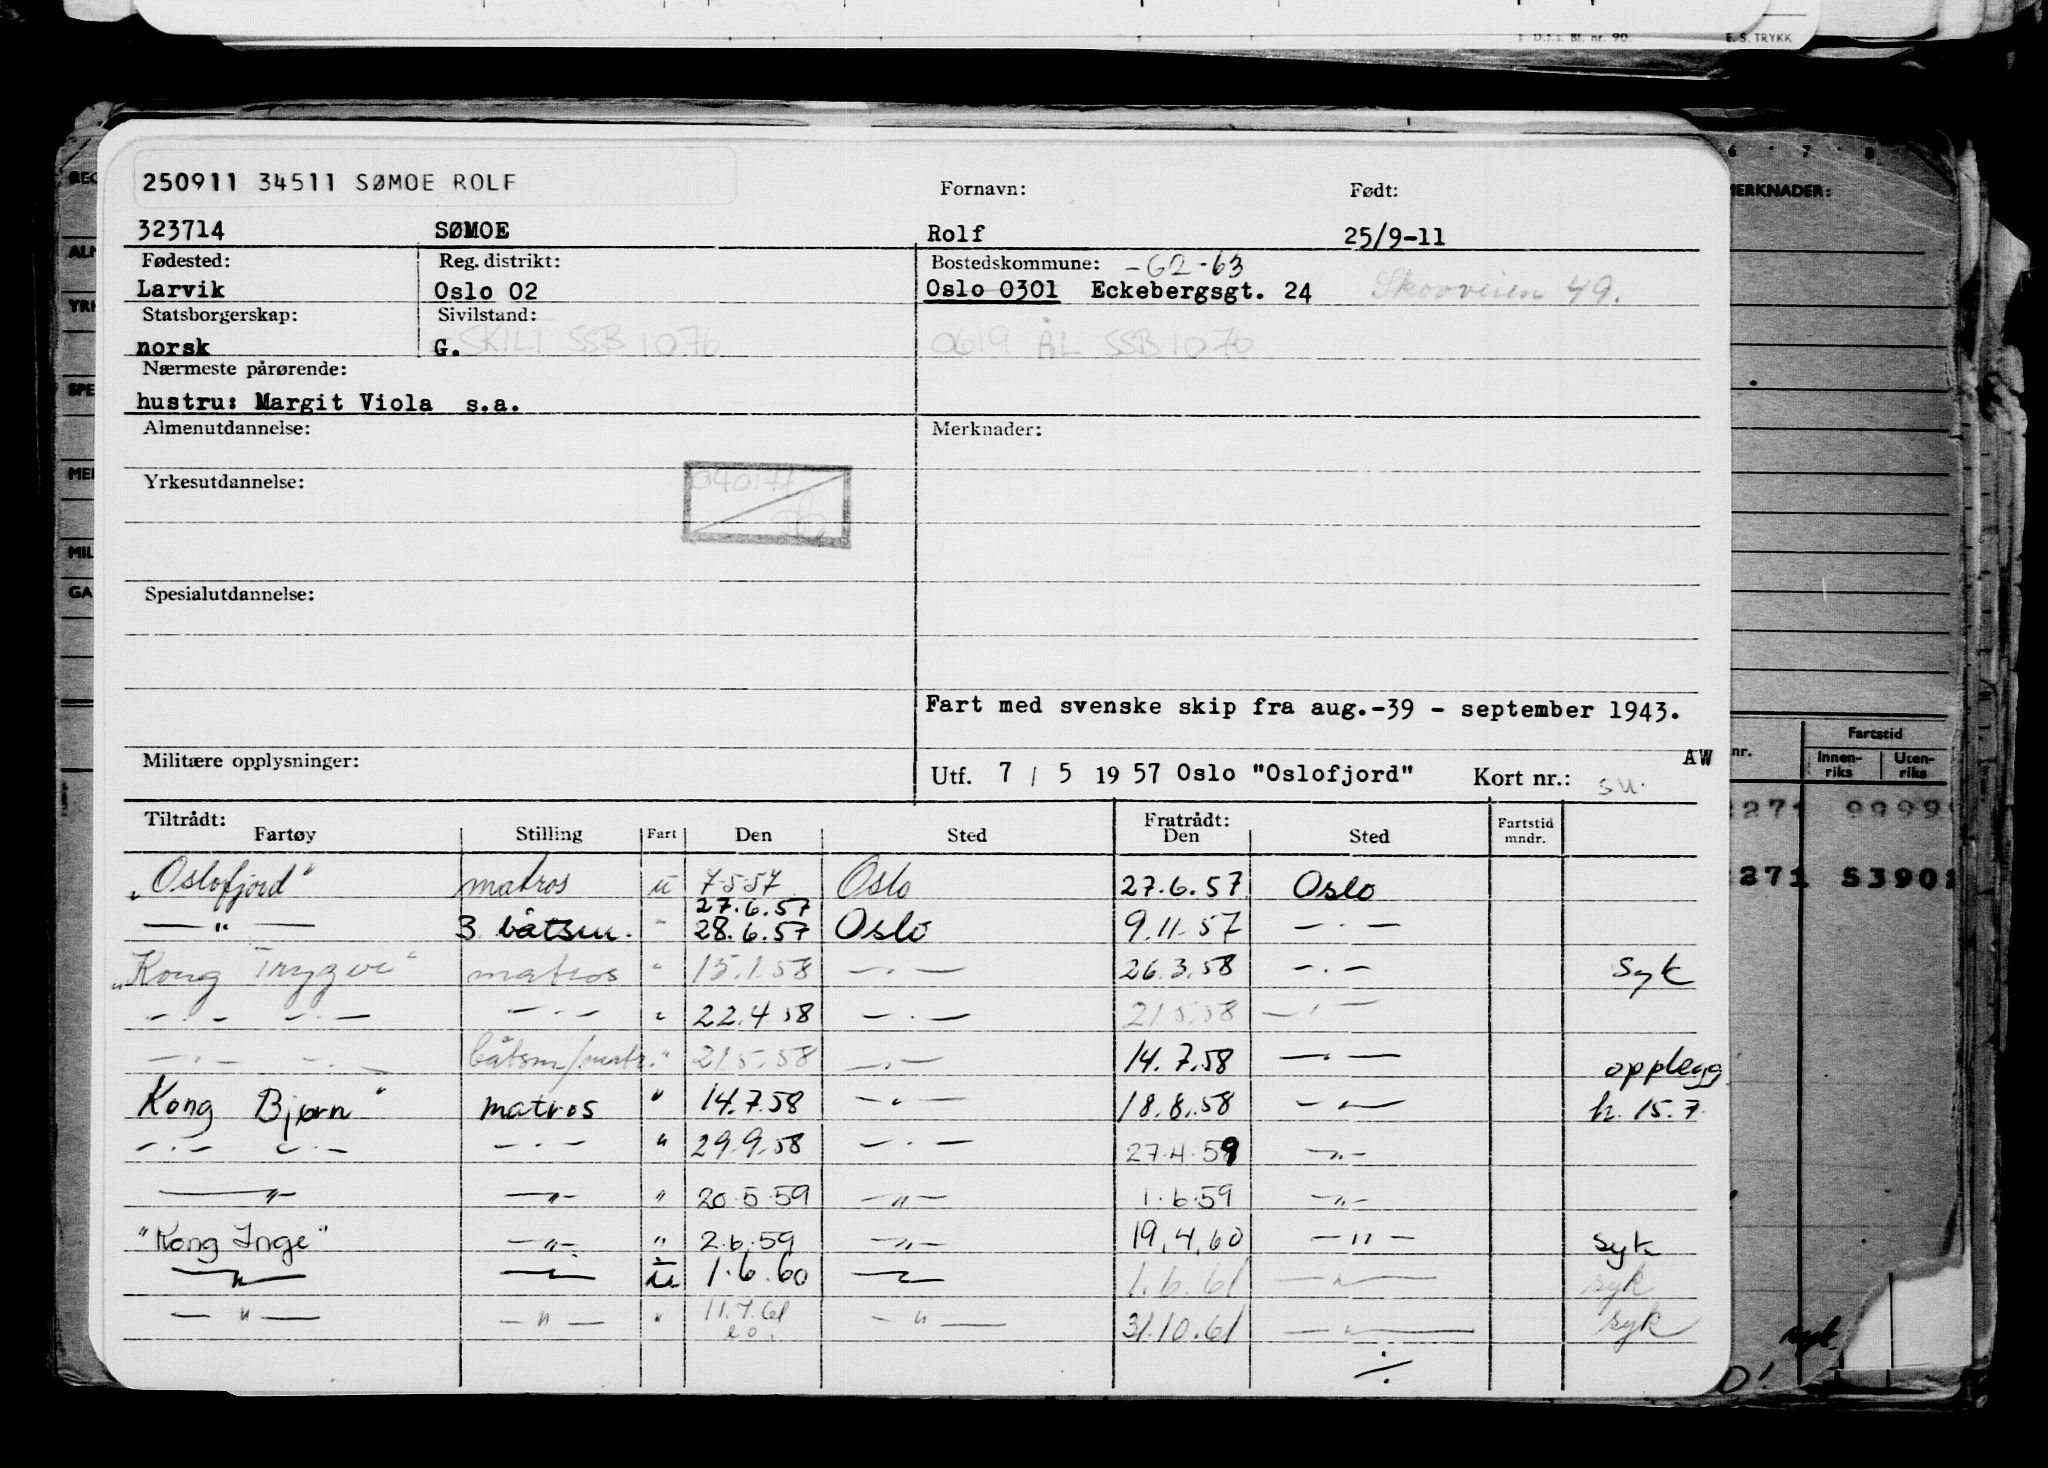 D.f.s. Bl. nr. 90. E. S. TRYKK
250911 34511 SØMOE ROLF
Fornavn: Født:
323714 SØMOE Rolf 25/9-11
Fødested: Reg. distrikt: Bostedskommune: -62-63
Larvik Oslo 02 Oslo 0301 Eckebergsgt. 24 Skovveien 49.
Statsborgerskap: Sivilstand:
norsk G. SKILT SSB 1076 0619 ÅL SSB 1070
Nærmeste pårørende:
hustru: Margit Viola s.a.
Almenutdannelse: Merknader:
Yrkesutdannelse: 040177
Spesialutdannelse:
Fart med svenske skip fra aug.-39 - september 1943.
AW
Militære opplysninger: Utf. 7 / 5 1957 Oslo "Oslofjord" Kort nr.: su.
Tiltrådt: Fratrådt: Fartstid
Fartøy Stilling Fart Den Sted Den Sted mndr.
"Oslofjord" matros u 7-5-57 Oslo 27.6.57 Oslo
27.6.57
—"— 3 båtsm. " 28.6.57 Oslo 9.11.57 —.—
"Kong Trygve" matros " 15.1.58 —.— 26.3.58 —.— Syk
—.— —.— —.— " 22.4.58 —.— 21.5.58 —.—
—.— —.— båtsm/matr. " 21.5.58 —.— 14.7.58 —.— opplegg
Kong Bjørn" matros " 14.7.58 —.— 18.8.58 —.— h. 15.7
—.— —.— —.— " 29.9.58 —.— 27.4.59 —"—
—"— —"— " 20.5.59 —"— 1.6.59 —"—
"Kong Inge" —"— " 2.6.59 —"— 19.4.60 —"— syk
—"— —"— u 1.6.60 —"— 1.6.61 —"— syk
—"— —"— " 11.7.61 —"— 31.10.61 —"— syk
÷
6 7 8
MERKNADER:
nr. Fartstid
Innen-riks Uten-riks
2271 9999
2271 S3901
REG
ALM
YRK
SPE
MER
MIL
GA